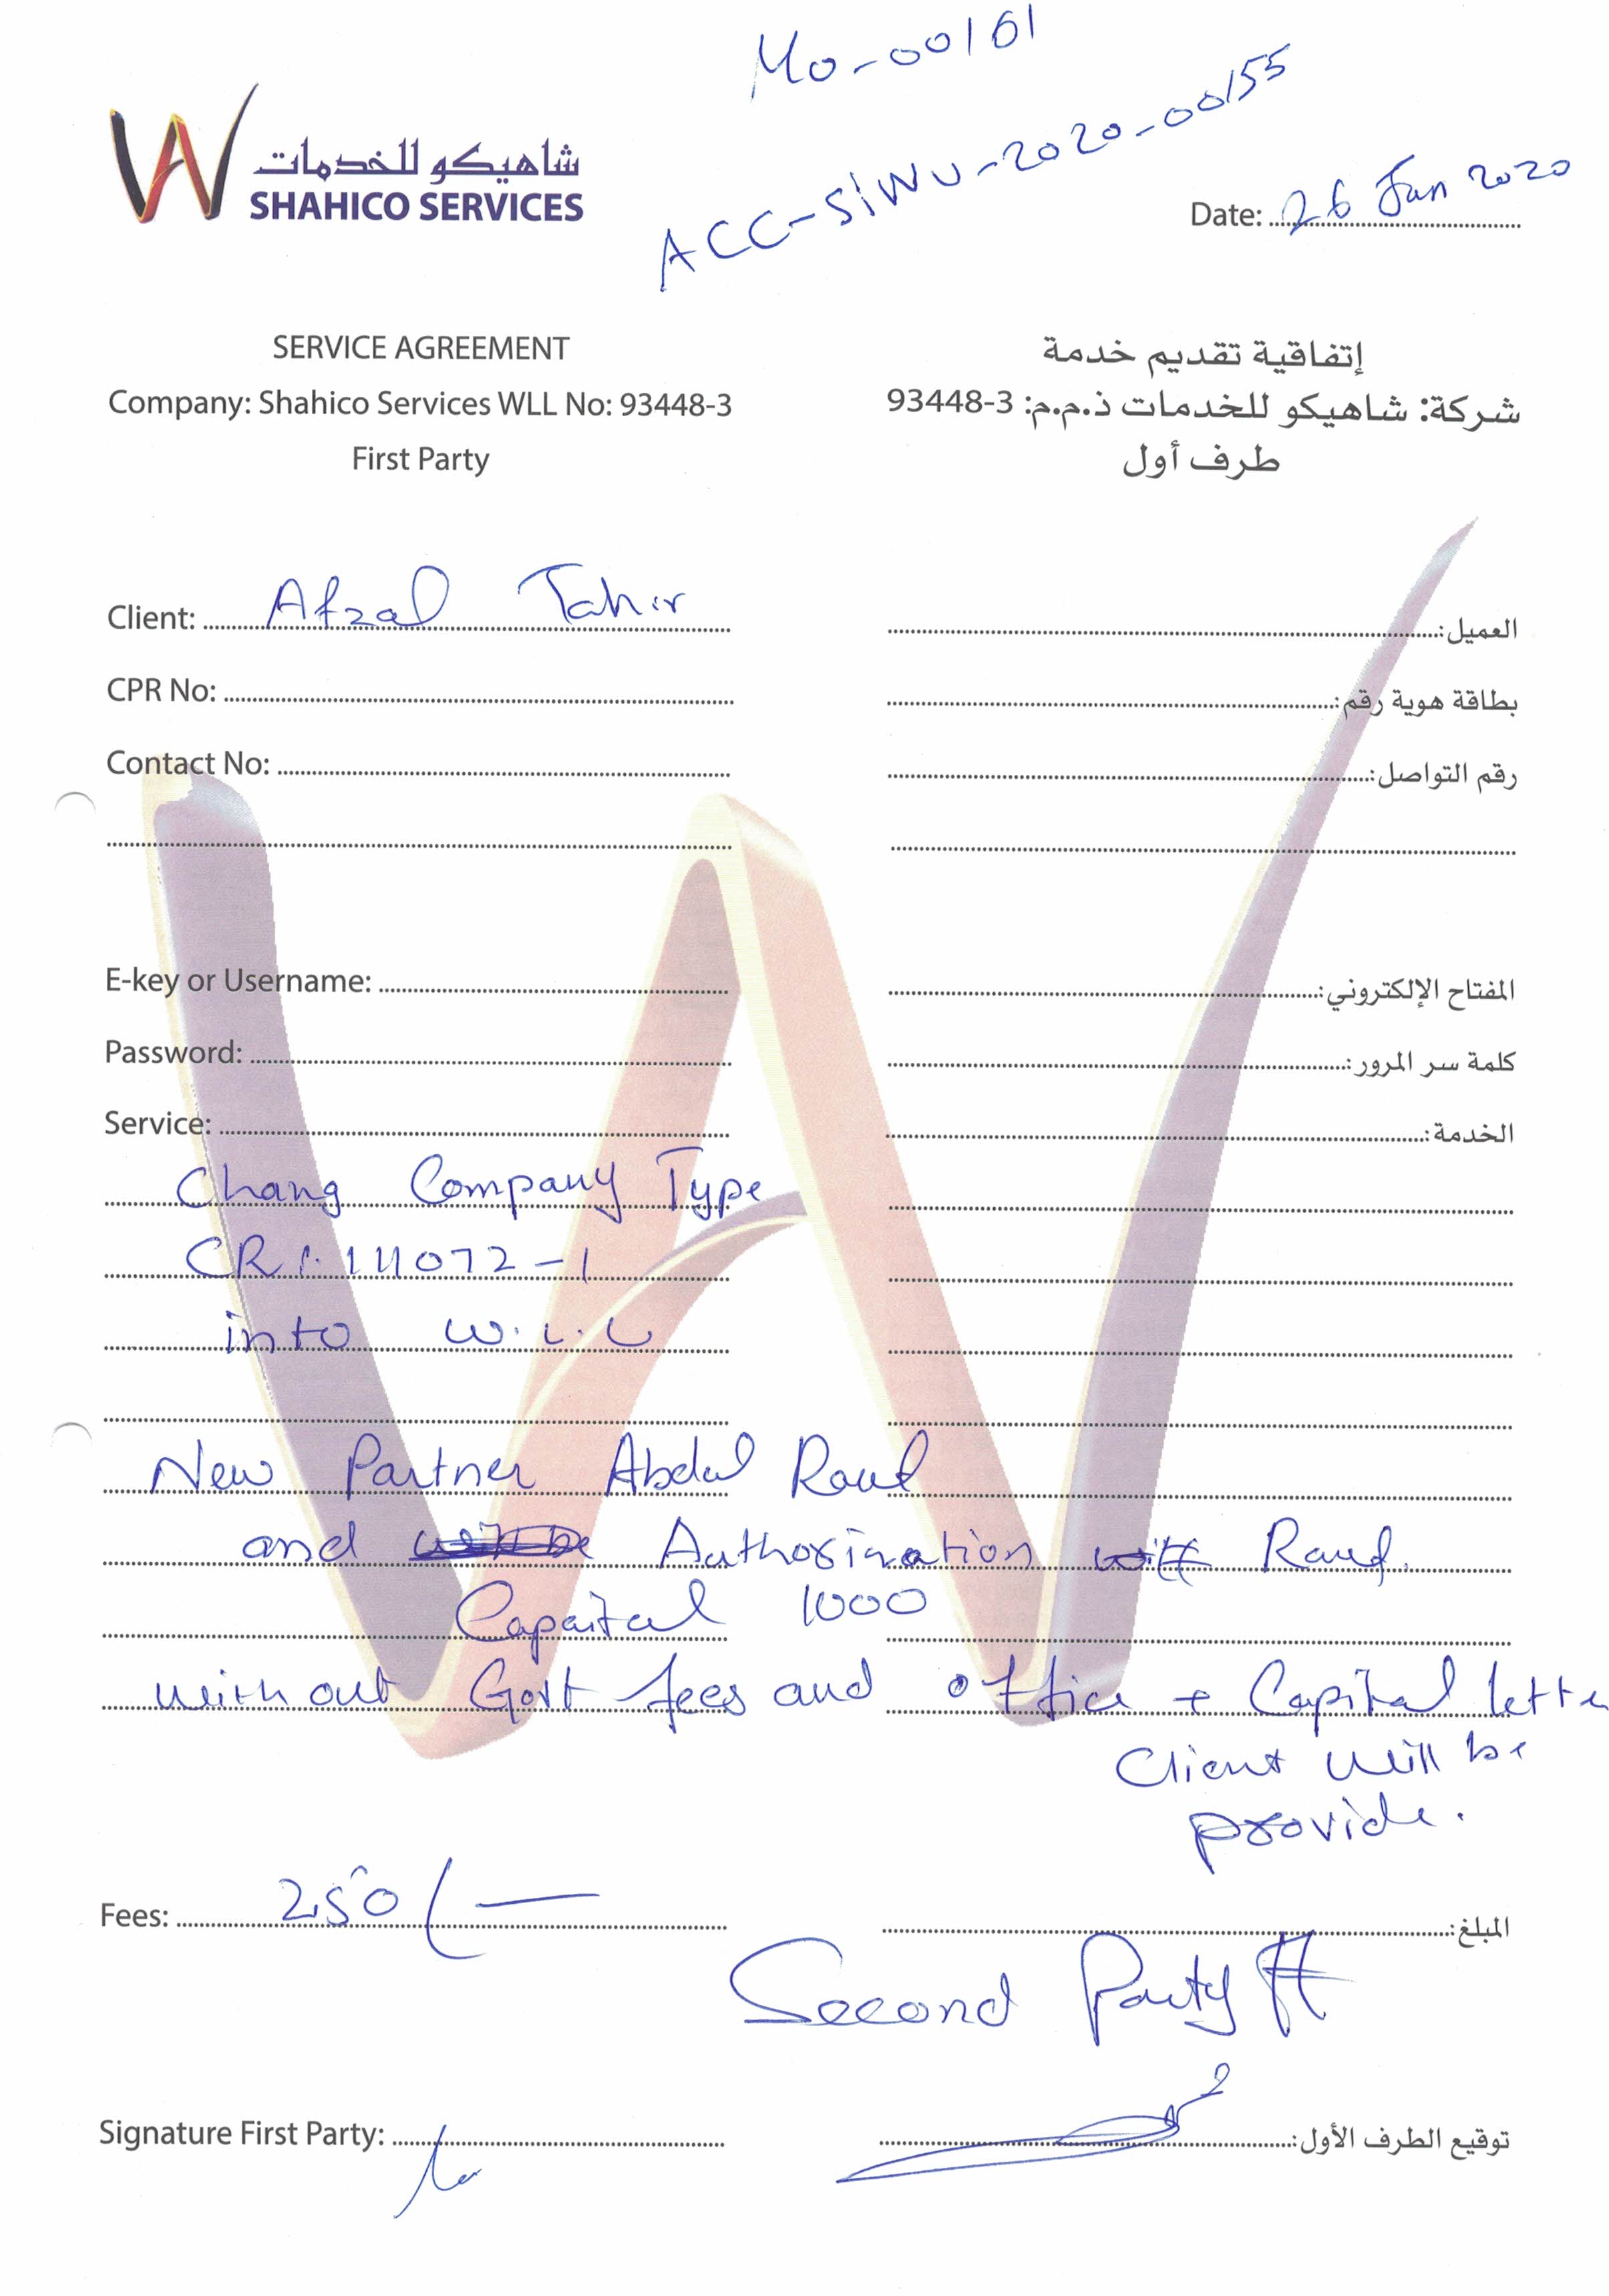 Mo-00161
ACC-SINV-2020-00155
شاهيكو للخدمات
SHAHICO SERVICES
Date: 26 Jan 2020
SERVICE AGREEMENT
إتفاقية تقديم خدمة
Company: Shahico Services WLL No: 93448-3
شركة: شاهيكو للخدمات ذ.م.م: 3-93448
First Party
طرف أول
Client: Afzal Tahir
العميل:
CPR No:
بطاقة هوية رقم:
Contact No:
رقم التواصل:
E-key or Username:
المفتاح الإلكتروني:
Password:
كلمة سر المرور:
Service:
الخدمة:
Chang Company Type
CR 111072-1
into W.L.L
New Partner Abdul Rauf
and Authorization with Rauf.
Capaital 1000
with out Govt fees and office + Capital lette
Client will be
provide.
Fees: 250/-
المبلغ:
Second Party
Signature First Party:
توقيع الطرف الأول: